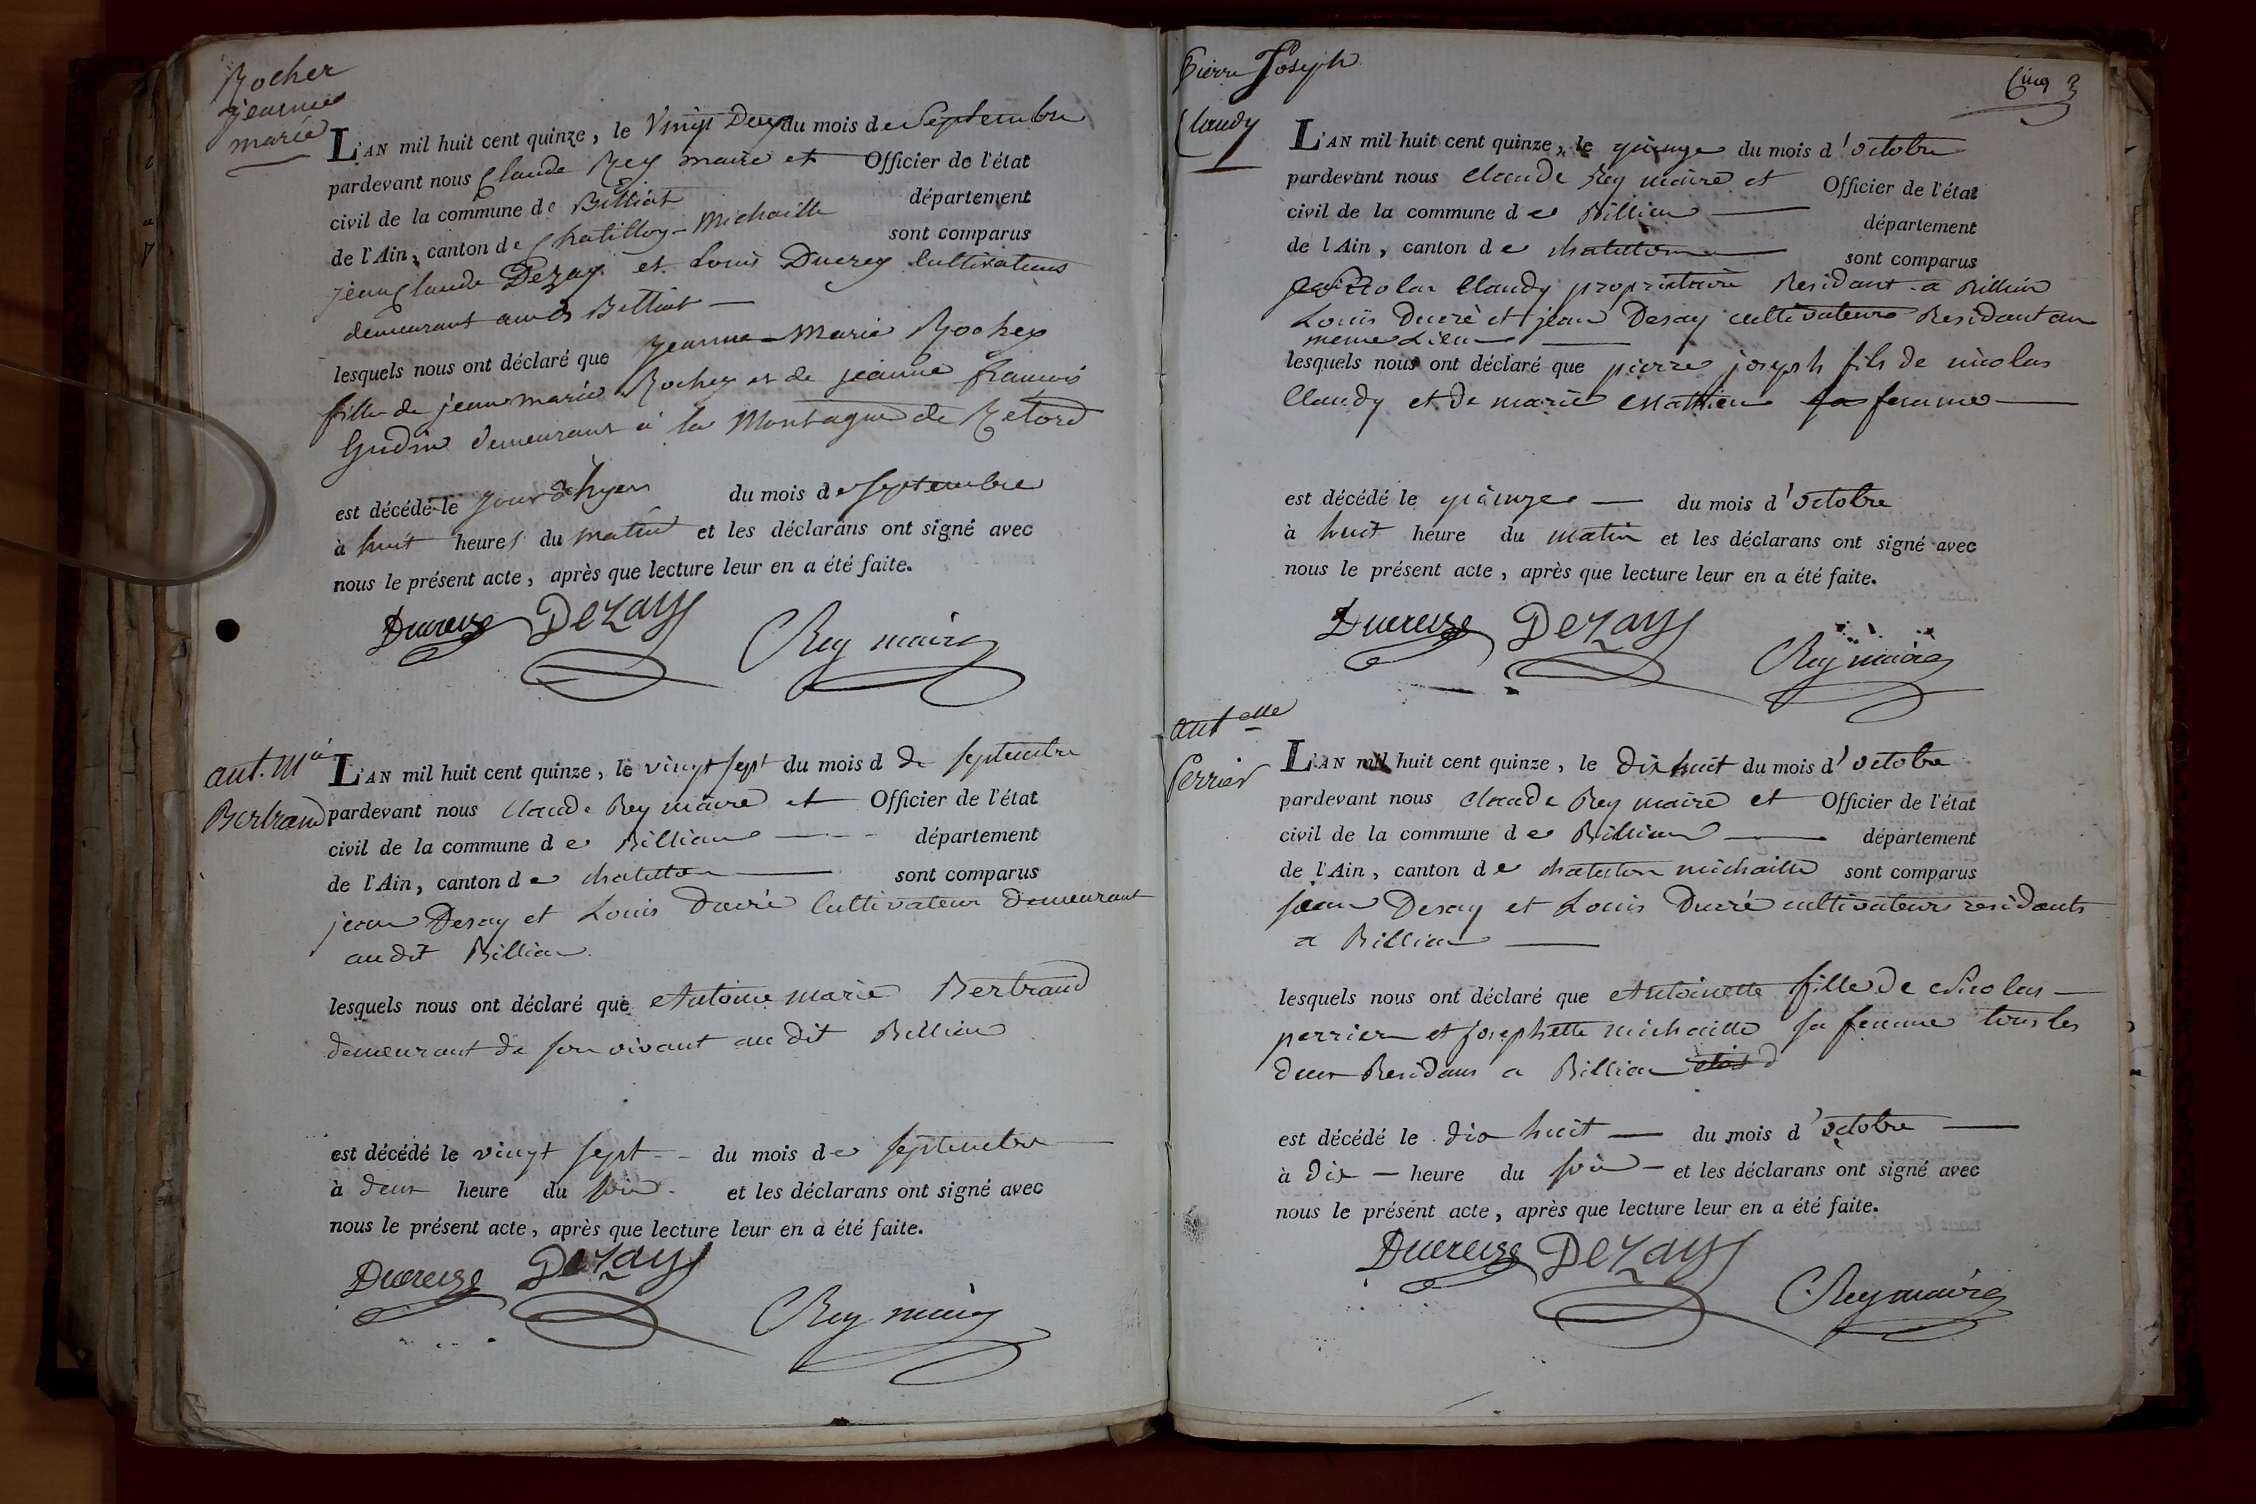 Rocher
jeanne
marie
L'AN mil huit cent quinze, le Vingt Deux du mois de Septembre
pardevant nous Claude Rey maire et Officier de l'état
civil de la commune de Billiat département
de l'Ain, canton de Chatillon-Michaille sont comparus
jean Claude Dezay et Louis Ducrey Cultivateurs
demeurant audit Billiat
lesquels nous ont déclaré que Jeanne-Marie Rochex
fille de jeanmarie Rochex et de jeanne francoise
Gudin demeurant à la Montagne de Retord
est décédé le jour d'hyer du mois de Septembre
à huit heures du matin et les déclarans ont signé avec
nous le présent acte, après que lecture leur en a été faite.
Ducrey Dezay Rey maire
ant. Mie
Bertrand
L'AN mil huit cent quinze, le vingt sept du mois d de septembre
pardevant nous Claude Rey maire et Officier de l'état
civil de la commune de Billian département
de l'Ain, canton de chatillon sont comparus
jean Desay et Louis Ducré Cultivateur demeurant
audit Billian
lesquels nous ont déclaré que Antoine marie Bertrand
demeurant de son vivant au dit Billian
est décédé le vingt sept du mois de septembre
à deux heure du soir et les déclarans ont signé avec
nous le présent acte, après que lecture leur en a été faite.
Ducrey Dezay Rey maire
Pierre Joseph
Claudy
Cinq
L'AN mil huit cent quinze, le quinze du mois d'octobre
pardevant nous Claude Rey maire et Officier de l'état
civil de la commune de Billian département
de l'Ain, canton de chatillon sont comparus
Nicolas Claudy propriétaire Residant a Billian
Louis Ducré et jean Desay cultivateurs Residant au
meme Lieu
lesquels nous ont déclaré que pierre joseph fils de nicolas
Claudy et de marie Mathieu sa femme
est décédé le quinze du mois d'octobre
à huit heure du matin et les déclarans ont signé avec
nous le présent acte, après que lecture leur en a été faite.
Ducrey Dezay Rey maire
antelle
Perrier
L'AN mil huit cent quinze, le dix huit du mois d'octobre
pardevant nous Claude Rey maire et Officier de l'état
civil de la commune de Billian département
de l'Ain, canton de chatillon michaille sont comparus
jean Desay et Louis Ducré cultivateurs residants
a Billian
lesquels nous ont déclaré que Antoinette fille de Nicolas
perrier et josephette michaille sa femme tous les
deux Residans a Billian
est décédé le dix huit du mois d'octobre
à dix heure du soir et les déclarans ont signé avec
nous le présent acte, après que lecture leur en a été faite.
Ducrey Dezay Rey maire